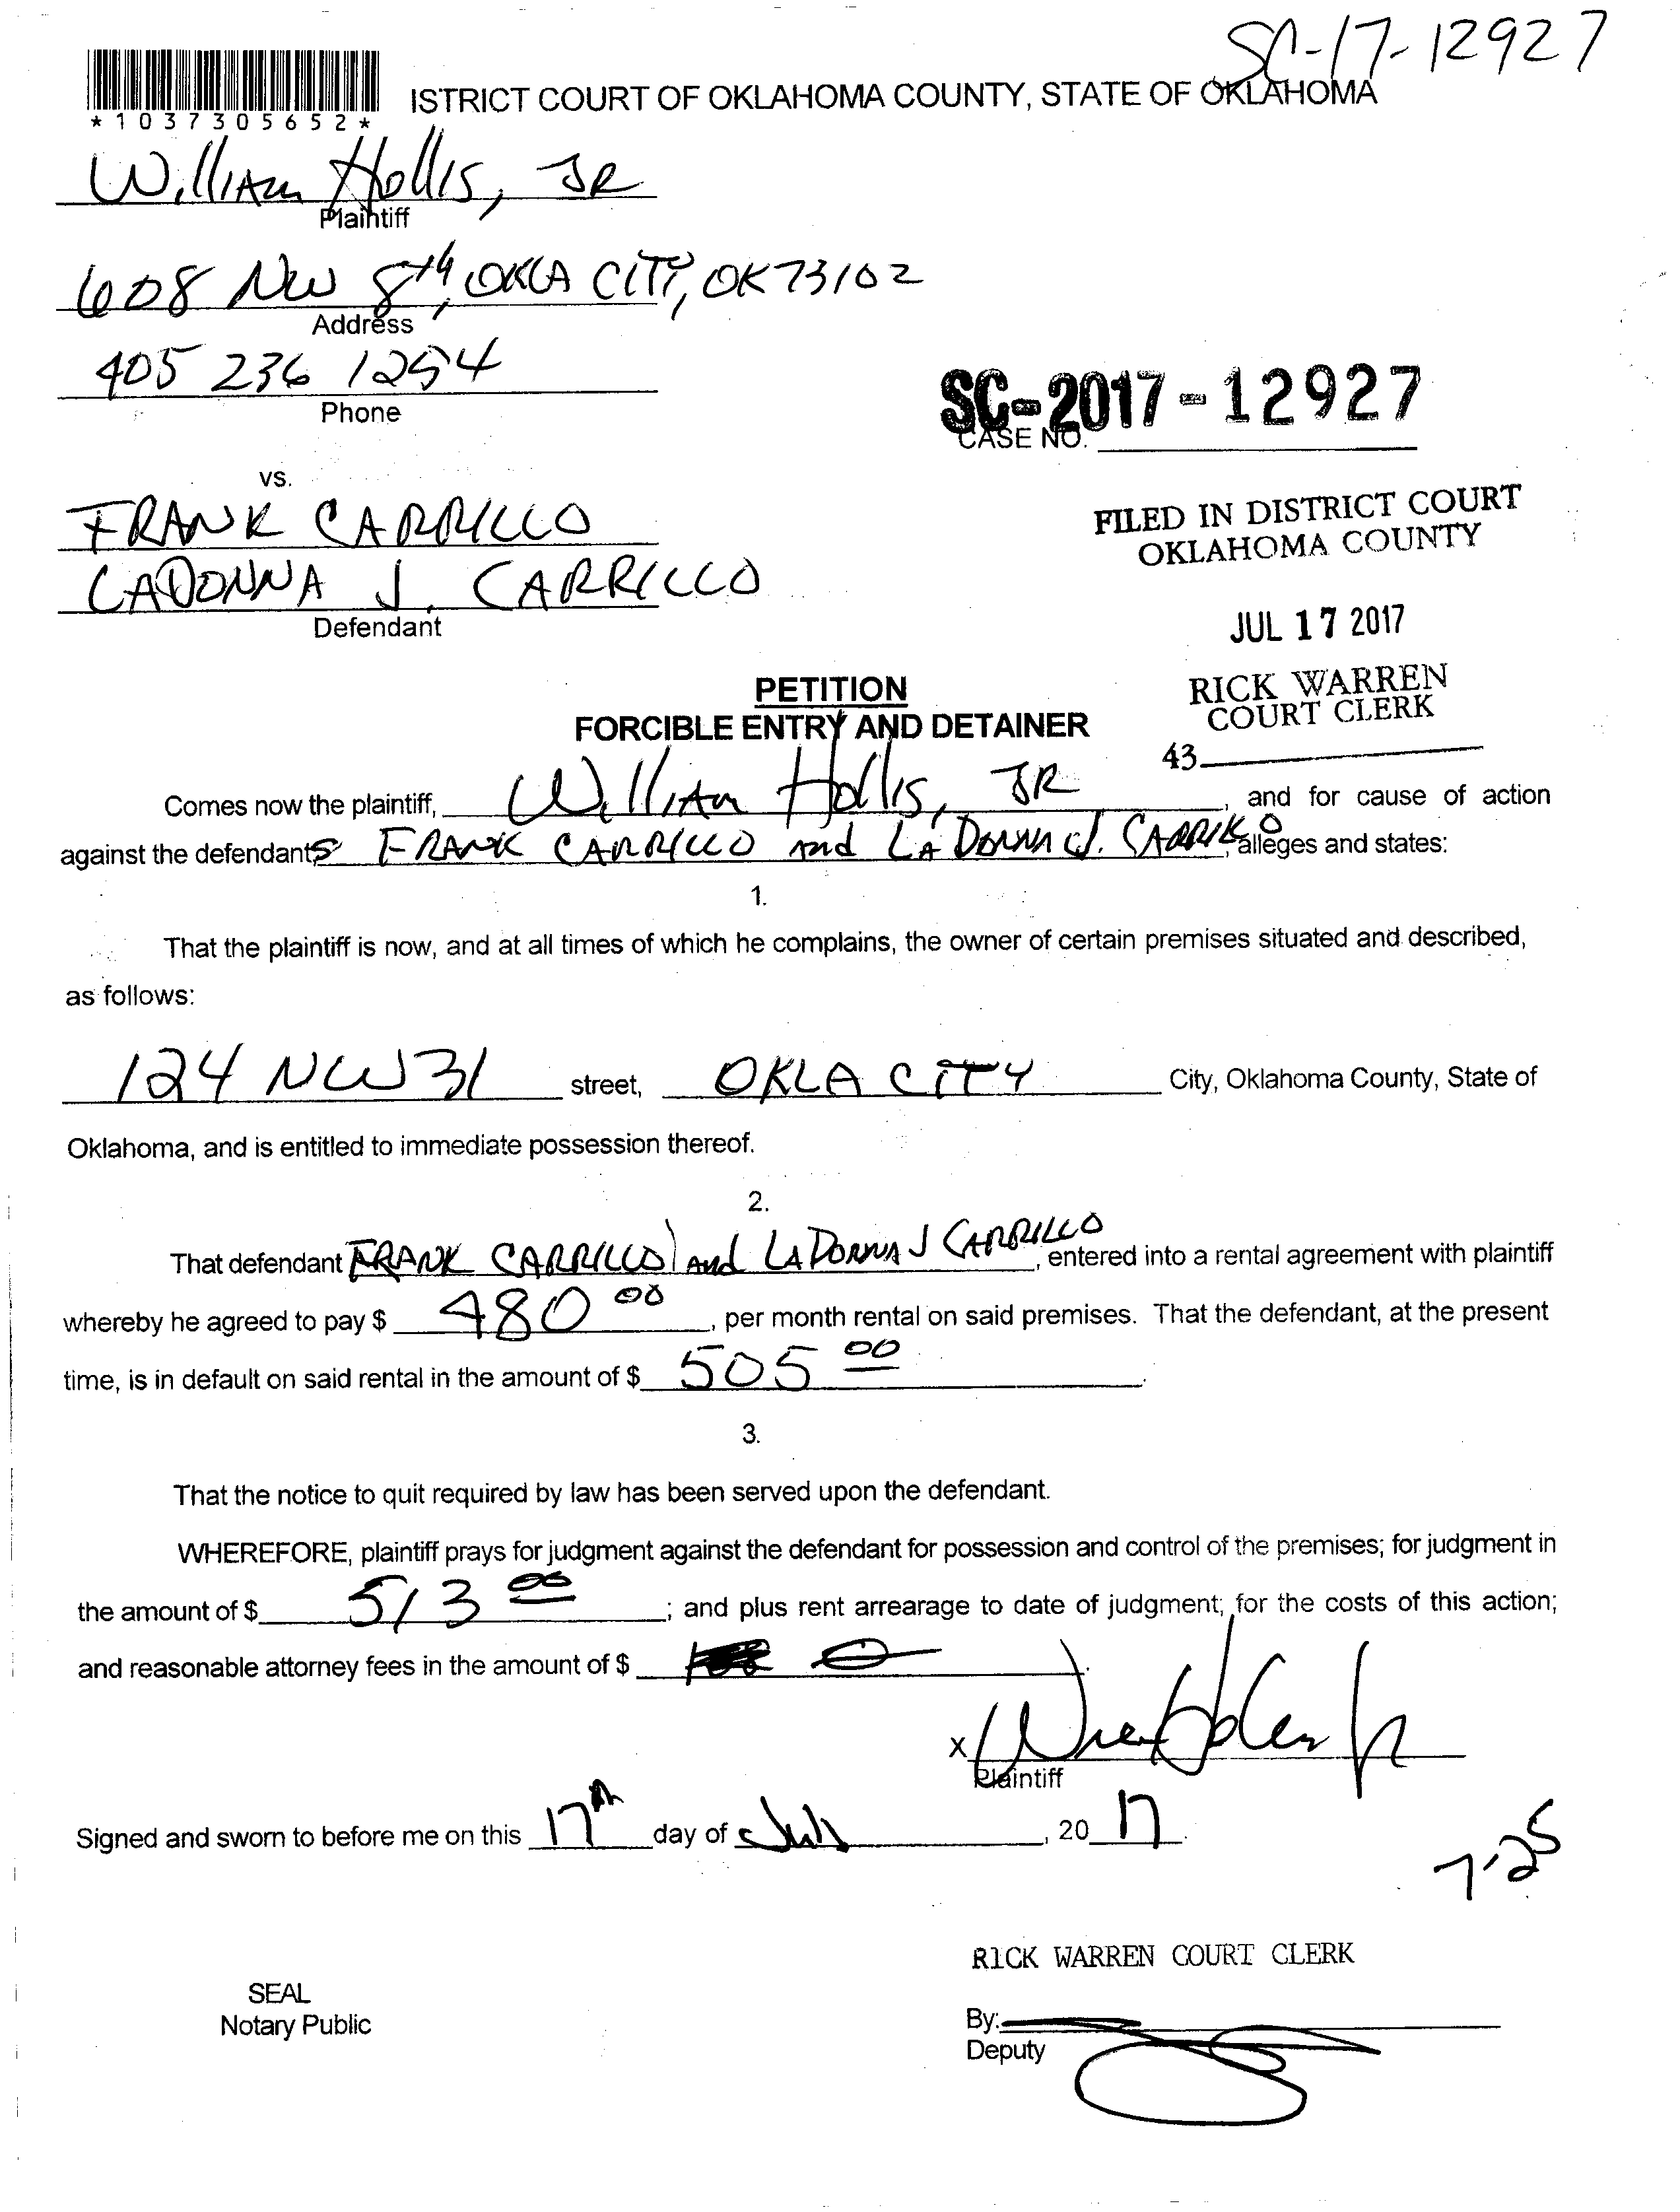 SC-17-12927
ISTRICT COURT OF OKLAHOMA COUNTY, STATE OF OKLAHOMA
*1037305652*
William Hollis, JR
Plaintiff
608 NW 8th, OKLA CITY, OK 73102
Address
405 236 1254
Phone
SC-2017-12927
CASE NO.
vs.
FRANK CARRILLO
LADONNA J. CARRILLO
Defendant
FILED IN DISTRICT COURT
OKLAHOMA COUNTY
JUL 17 2017
RICK WARREN
COURT CLERK
43
PETITION
FORCIBLE ENTRY AND DETAINER
Comes now the plaintiff, William Hollis, JR, and for cause of action
against the defendants FRANK CARRILLO and LA DONNA J. CARRILLO, alleges and states:
1.
That the plaintiff is now, and at all times of which he complains, the owner of certain premises situated and described,
as follows:
124 NW 31 street, OKLA CITY City, Oklahoma County, State of
Oklahoma, and is entitled to immediate possession thereof.
2.
That defendant FRANK CARRILLO and LADONNA J CARRILLO, entered into a rental agreement with plaintiff
whereby he agreed to pay $ 480 00, per month rental on said premises. That the defendant, at the present
time, is in default on said rental in the amount of $ 505 00.
3.
That the notice to quit required by law has been served upon the defendant.
WHEREFORE, plaintiff prays for judgment against the defendant for possession and control of the premises; for judgment in
the amount of $ 513 00; and plus rent arrearage to date of judgment; for the costs of this action;
and reasonable attorney fees in the amount of $ 0.
x
Plaintiff
Signed and sworn to before me on this 17th day of July, 20 17.
7-25
RICK WARREN COURT CLERK
SEAL
Notary Public
By:
Deputy